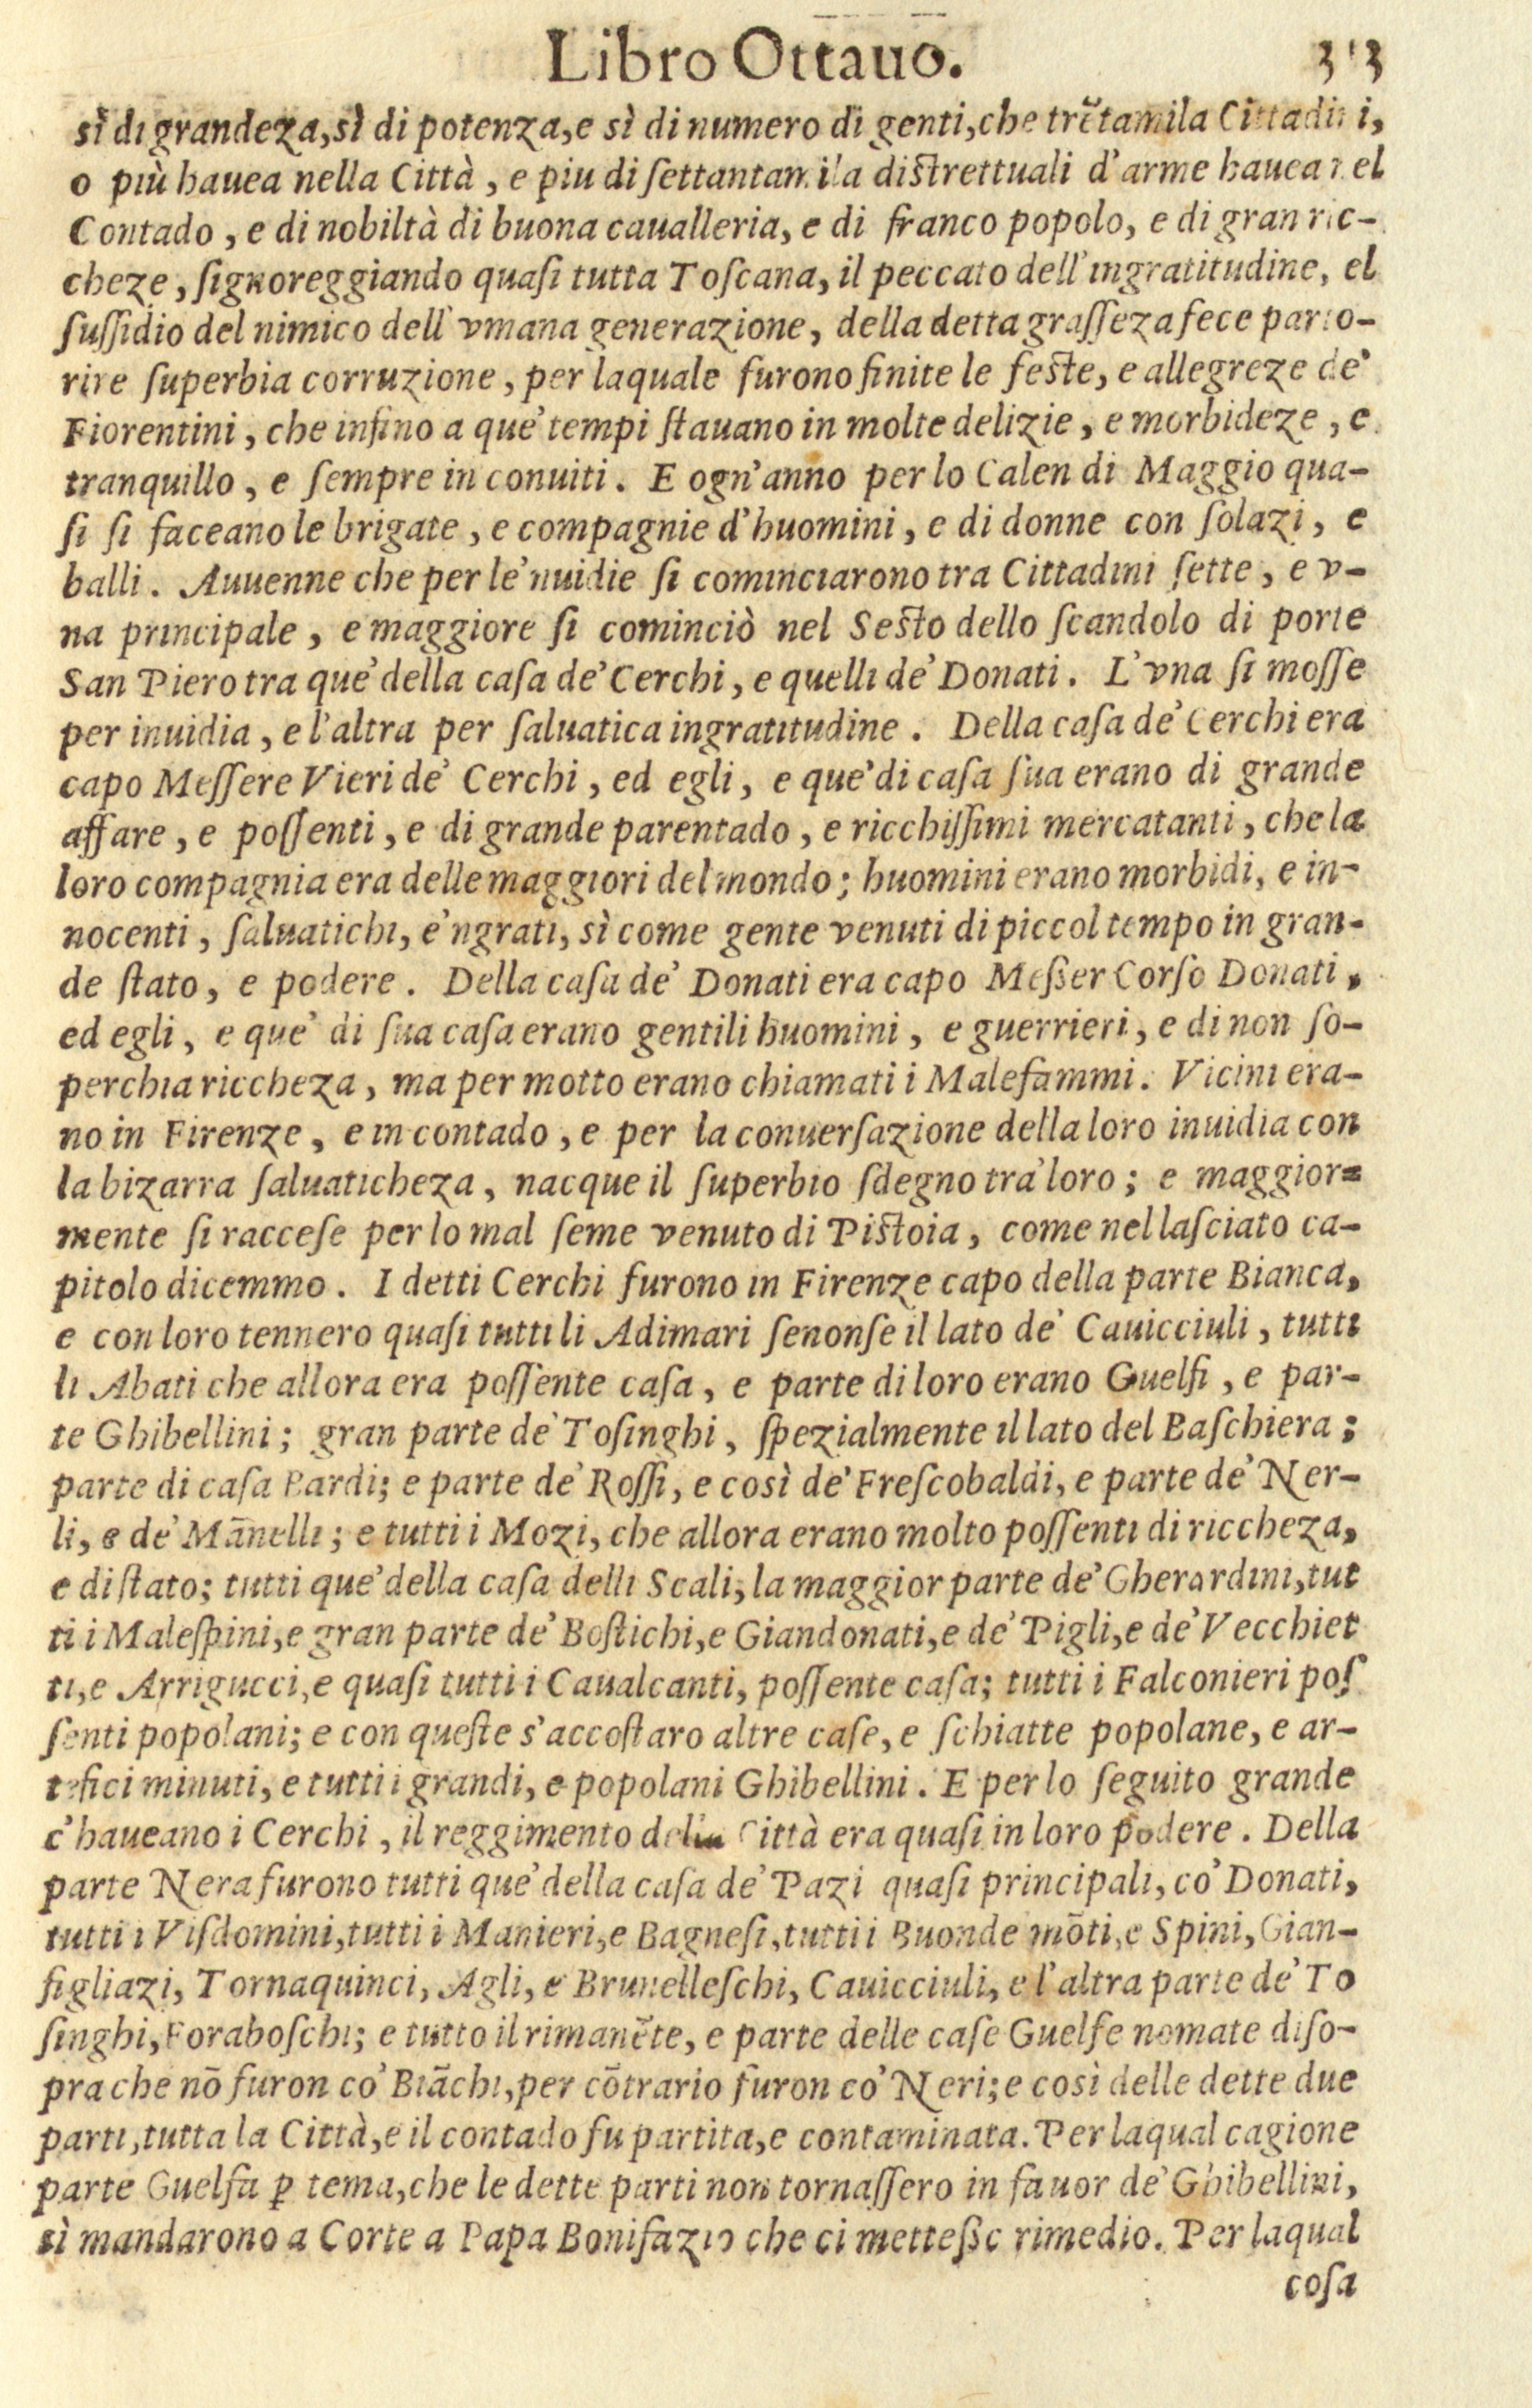 Libro Ottauo. 313
sì di grandeza, sì di potenza, e sì di numero di genti, che trẽtamila Cittadini,
o più hauea nella Città, e piu di ſettantamila distrettuali d'arme hauea nel
Contado, e di nobiltà di buona caualleria, e di franco popolo, e di gran ric-
cheze, ſignoreggiando quaſi tutta Toſcana, il peccato dell'ingratitudine, el
ſuſſidio del nimico dell'vmana generazione, della detta graſſeza fece parto-
rire ſuperbia corruzione, per laquale furono finite le feste, e allegreze de'
Fiorentini, che infino a que' tempi ſtauano in molte delizie, e morbideze, e
tranquillo, e ſempre in conuiti. E ogn'anno per lo Calen di Maggio qua-
ſi ſi faceano le brigate, e compagnie d'huomini, e di donne con ſolazi, e
balli. Auuenne che per le'nuidie ſi cominciarono tra Cittadini ſette, e v-
na principale, e maggiore ſi cominciò nel Sesto dello ſcandolo di porte
San Piero tra que' della caſa de' Cerchi, e quelli de' Donati. L'vna ſi moſſe
per inuidia, e l'altra per ſaluatica ingratitudine. Della caſa de' Cerchi era
capo Meſſere Vieri de' Cerchi, ed egli, e que' di caſa ſua erano di grande
affare, e poſſenti, e di grande parentado, e ricchiſſimi mercatanti, che la
loro compagnia era delle maggiori del mondo; huomini erano morbidi, e in-
nocenti, ſaluatichi, e'ngrati, sì come gente venuti di piccol tempo in gran-
de ſtato, e podere. Della caſa de' Donati era capo Meßer Corſo Donati,
ed egli, e que' di ſua caſa erano gentili huomini, e guerrieri, e di non ſo-
perchia riccheza, ma per motto erano chiamati i Malefammi. Vicini era-
no in Firenze, e in contado, e per la conuerſazione della loro inuidia con
la bizarra ſaluaticheza, nacque il ſuperbio ſdegno tra' loro; e maggior-
mente ſi racceſe per lo mal ſeme venuto di Pistoia, come nel laſciato ca-
pitolo dicemmo. I detti Cerchi furono in Firenze capo della parte Bianca,
e con loro tennero quaſi tutti li Adimari ſenonſe il lato de' Cauicciuli, tutti
li Abati che allora era poſſente caſa, e parte di loro erano Guelfi, e par-
te Ghibellini; gran parte de' Toſinghi, ſpezialmente il lato del Baſchiera;
parte di caſa Bardi; e parte de' Roſſi, e così de' Freſcobaldi, e parte de' Ner-
li, e de' Mãnelli; e tutti i Mozi, che allora erano molto poſſenti di riccheza,
e di ſtato; tutti que' della caſa delli Scali, la maggior parte de' Gherardini, tut
ti i Maleſpini, e gran parte de' Boſtichi, e Giandonati, e de' Pigli, e de' Vecchiet
ti, e Arrigucci, e quaſi tutti i Caualcanti, poſſente caſa; tutti i Falconieri poſ
ſenti popolani; e con queſte s'accoſtaro altre caſe, e ſchiatte popolane, e ar-
tefici minuti, e tutti i grandi, e popolani Ghibellini. E per lo ſeguito grande
c'haueano i Cerchi, il reggimento della Città era quaſi in loro podere. Della
parte Nera furono tutti que' della caſa de' Pazi quaſi principali, co' Donati,
tutti i Viſdomini, tutti i Manieri, e Bagneſi, tutti i Buonde mõti, e Spini, Gian-
figliazi, Tornaquinci, Agli, e Brunelleſchi, Cauicciuli, e l'altra parte de' To
ſinghi, Foraboſchi; e tutto il rimanẽte, e parte delle caſe Guelfe nomate diſo-
pra che nõ furon co' Biãchi, per cõtrario furon co' Neri; e così delle dette due
parti, tutta la Città, e il contado fu partita, e contaminata. Per laqual cagione
parte Guelfa ꝑ tema, che le dette parti non tornaſſero in fauor de' Ghibellini,
sì mandarono a Corte a Papa Bonifazio che ci metteße rimedio. Per laqual
coſa